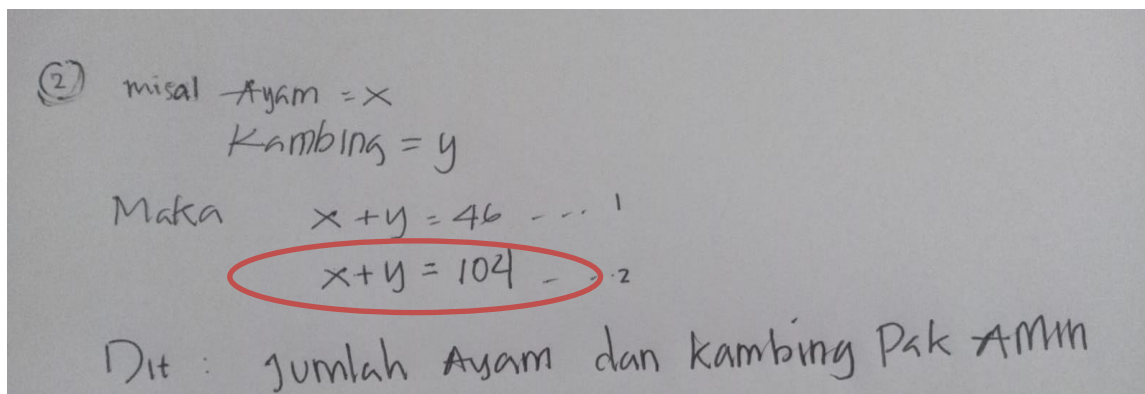 ② misal Ayam = x
Kambing = y
Maka x + y = 46 - - .. 1
x + y = 104 - - . 2
Dit : Jumlah Ayam dan kambing Pak Amin